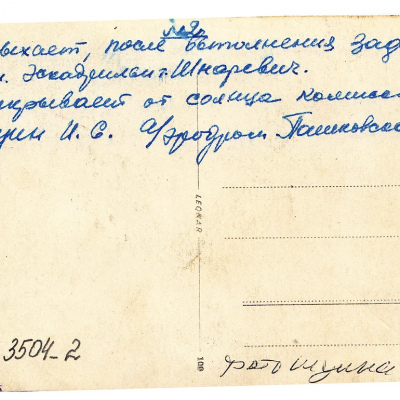 №2
ыхает, после выполнения зад
эскадрильи Шнаревич.
крывает от солнца комисса
И. С. а/эродром Пашковско
LEONAR
3504-2
109
фото Шулина